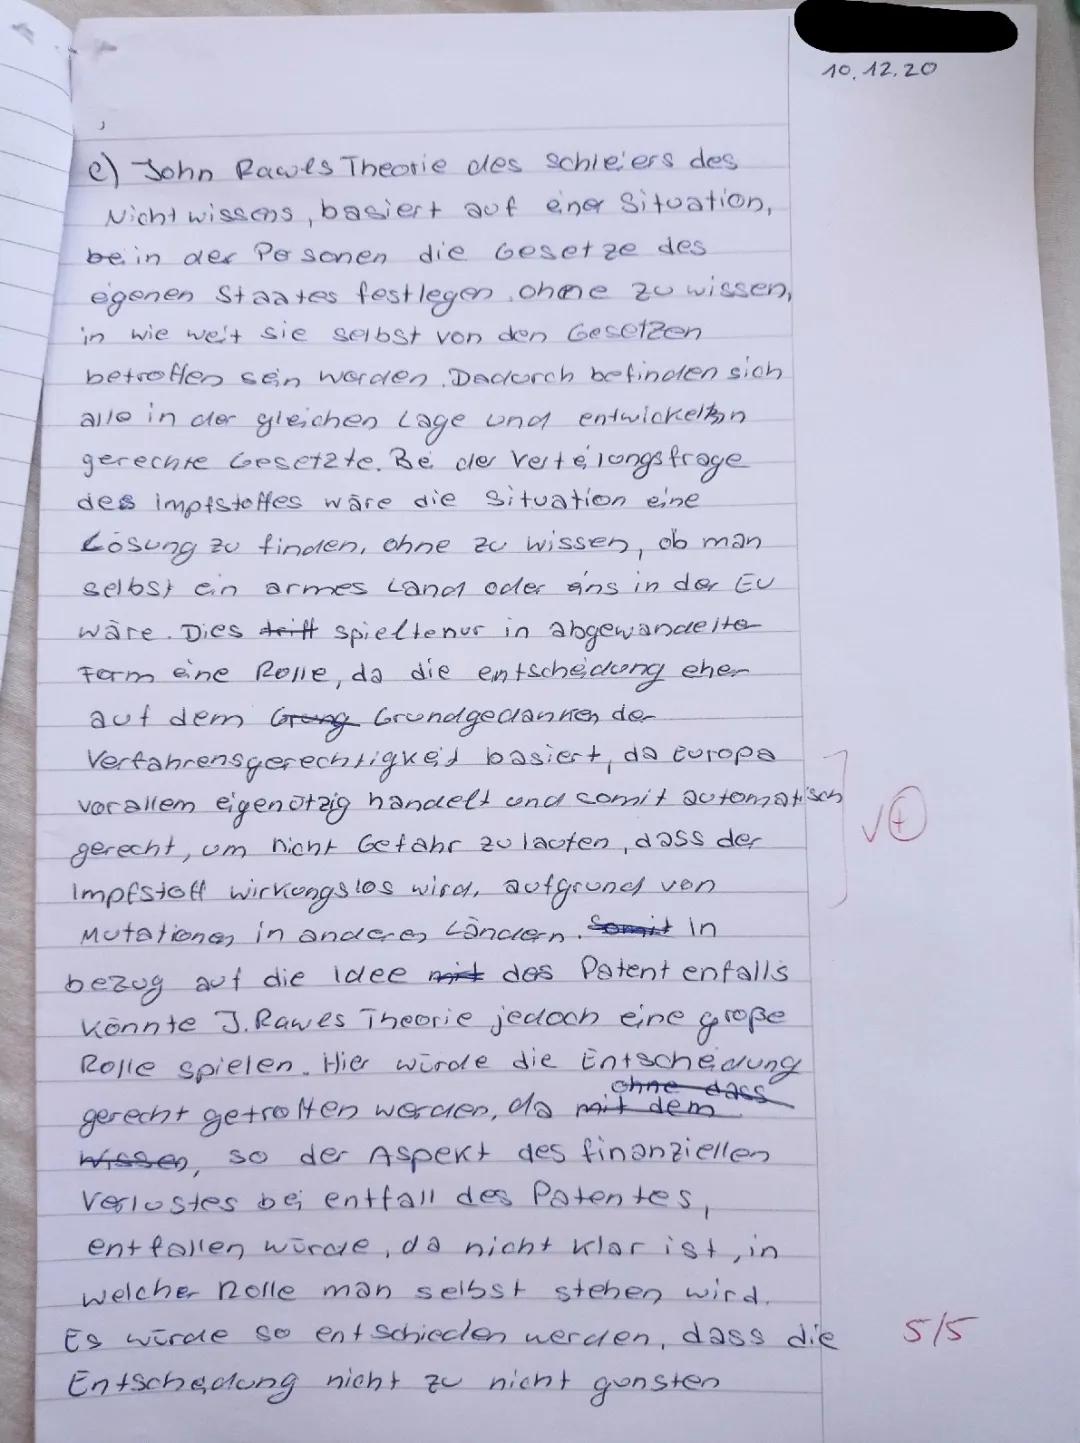 10.12.20
e) John Rawls Theorie des schleiers des
Nichtwissens, basiert auf einer Situation,
bei in der Personen die Gesetze des
eigenen Staates festlegen, ohne zu wissen,
in wie weit sie selbst von den Gesetzen
betroffen sein werden. Dadurch befinden sich
alle in der gleichen Lage und entwickeln
gerechte Gesetzte. Bei der Verteilungsfrage
des Impfstoffes wäre die Situation eine
Lösung zu finden, ohne zu wissen, ob man
selbst ein armes Land oder eins in der EU
wäre. Dies spielte nur in abgewandelter
Form eine Rolle, da die entscheidung eher
auf dem Grundgedanken der
Verfahrensgerechtigkeit basiert, da Europa
vorallem eigenützig handelt und somit automatisch
gerecht, um nicht Gefahr zu laufen, dass der
√ +
Impfstoff wirkungslos wird, aufgrund von
Mutationen in anderen Ländern. Somit in
bezug auf die Idee mit des Patent enfalls
könnte J. Rawles Theorie jedoch eine große
Rolle spielen. Hier würde die Entscheidung
gerecht getroffen werden, da mit dem ohne dass
wissen, so der Aspekt des finanziellen
Verlustes bei entfall des Patentes,
entfallen würde, da nicht klar ist, in
welcher Rolle man selbst stehen wird.
Es würde so entschieden werden, dass die
5/5
Entscheidung nicht zu nicht gunsten